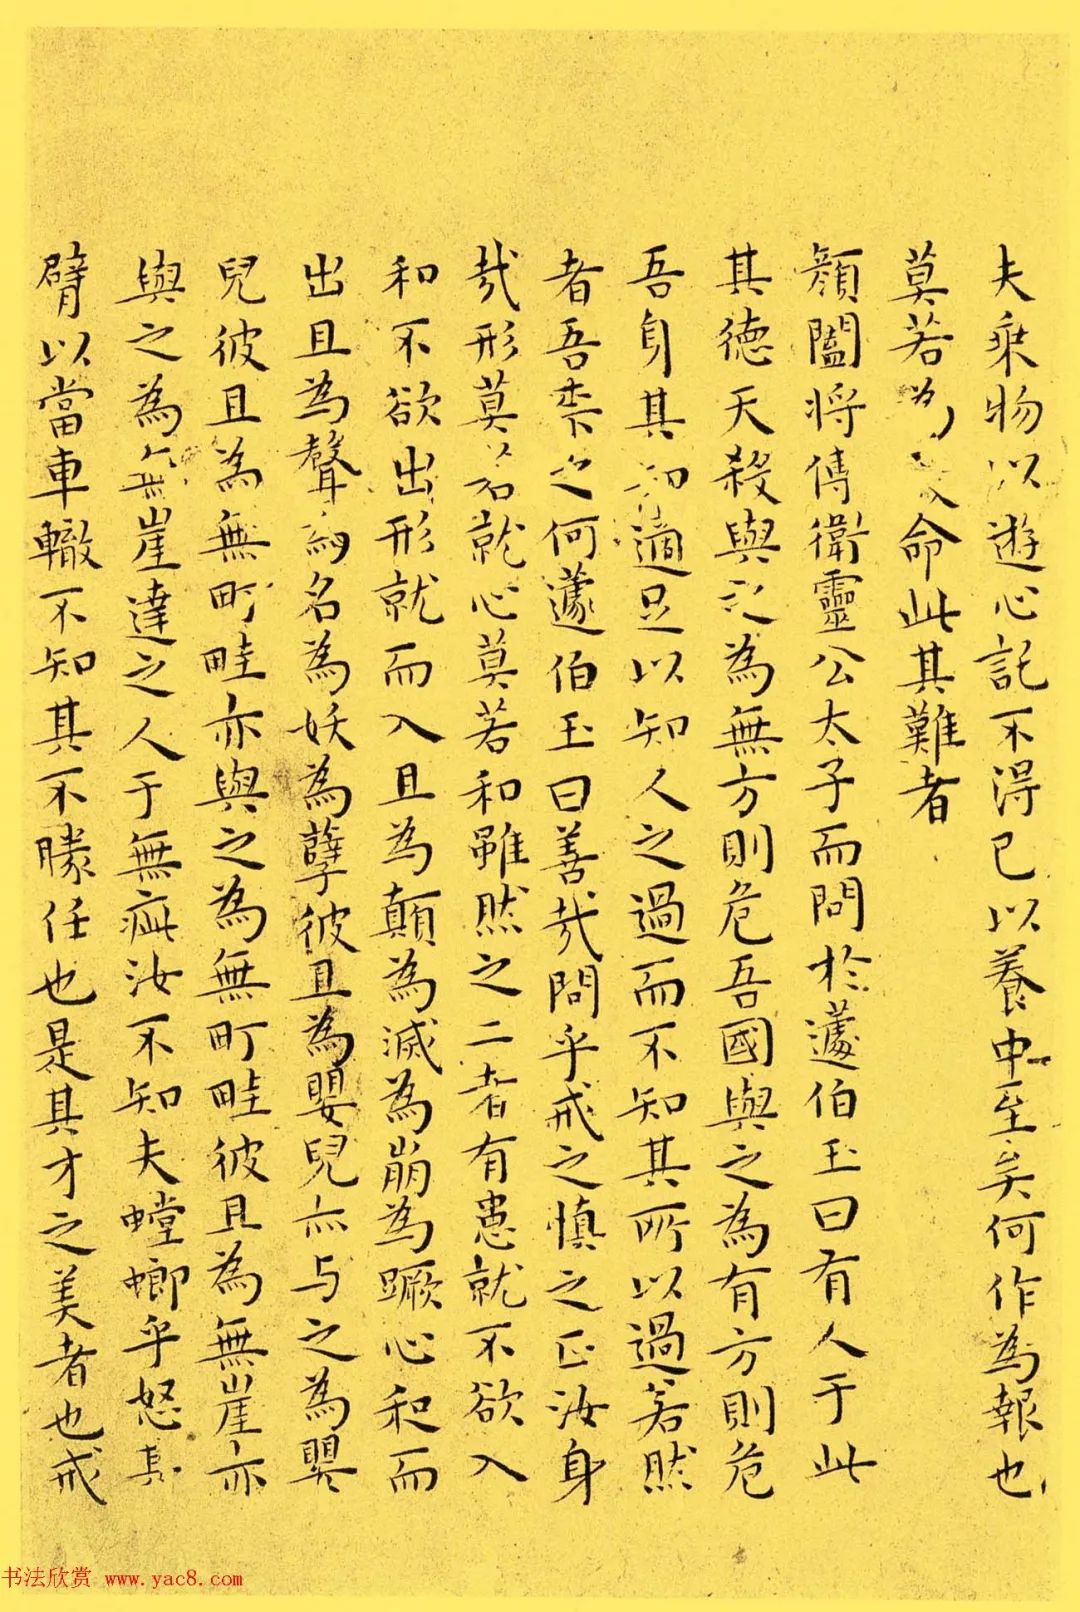 夫乘物以遊心託不淂已以養中至矣何作為報也
莫若為致命此其難者
顏闔将傅衛靈公太子而問於蘧伯玉曰有人于此
其德天殺與之為無方則危吾國與之為有方則危
吾身其知適足以知人之過而不知其所以過若然
者吾柰之何蘧伯玉曰善哉問乎戒之慎之正汝身
哉形莫若就心莫若和雖然之二者有患就不欲入
和不欲出形就而入且為顛為滅為崩為蹶心和而
出且為聲為名為妖為孽彼且為嬰兒亦与之為嬰
兒彼且為無町畦亦與之為無町畦彼且為無崖亦
與之為無崖達之入于無疵汝不知夫螳螂乎怒其
臂以當車轍不知其不勝任也是其才之美者也戒
书法欣赏 www.yac8.com